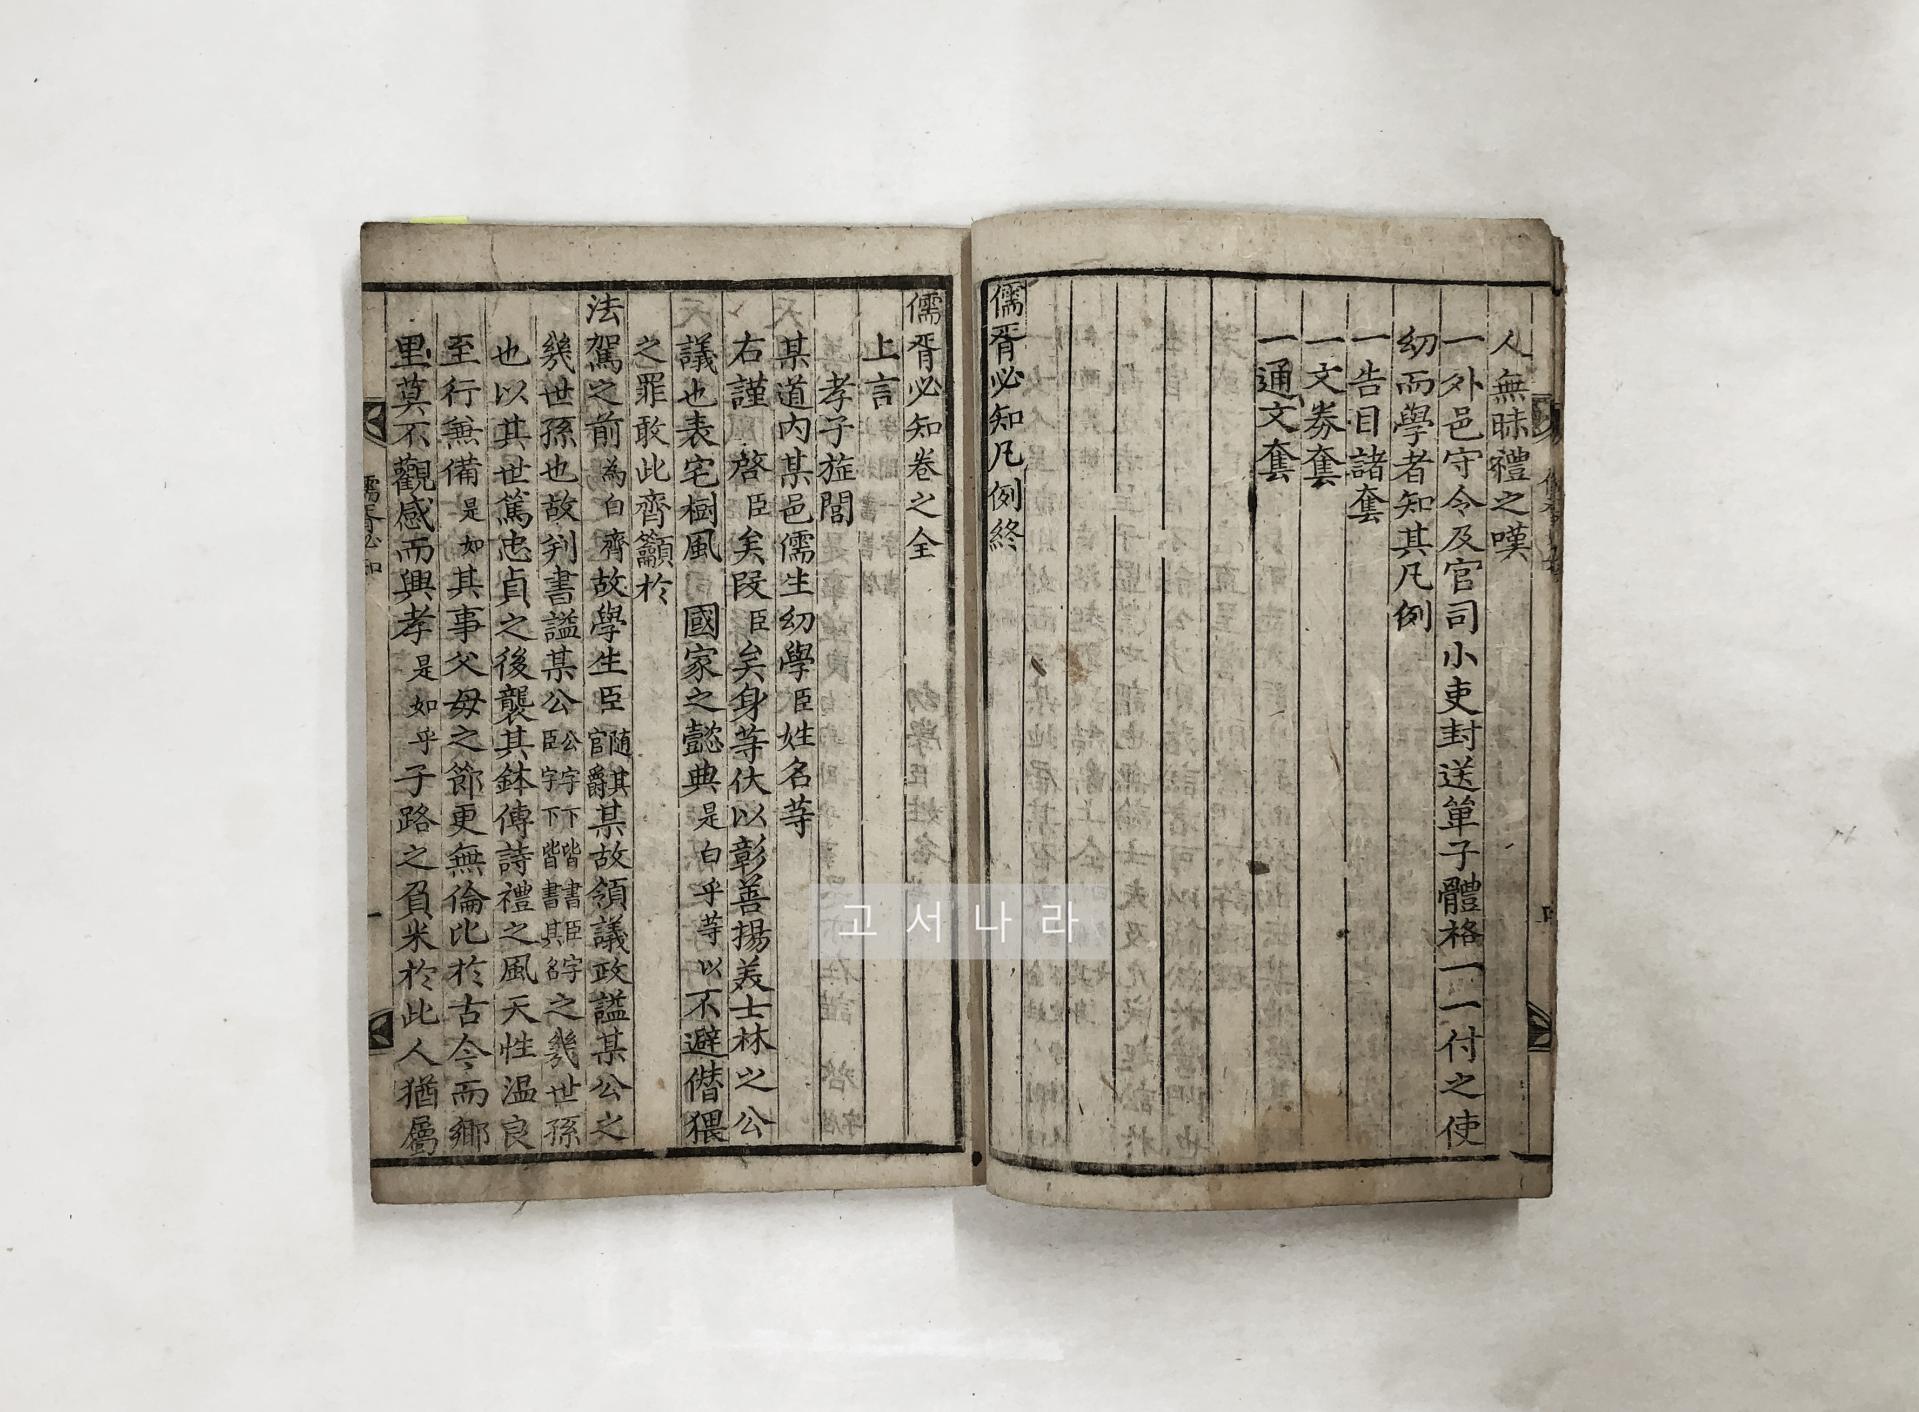 人無昧禮之嘆
一外邑守令及官司小吏封送單子體格一一付之使
幼而學者知其凡例
一告目諸套
一文券套
一通文套
儒胥必知凡例終
儒胥必知卷之全
上言
孝子旌閭
某道內某邑儒生幼學臣姓名等
右謹 啓臣矣段臣矣身等伏以彰善揚美士林之公
議也表宅樹風 國家之懿典是白乎等以不避僭猥
之罪敢此齊籲於
法駕之前為白齊故學生臣隨其官爵某故領議政諡某公之
幾世孫也故判書諡某公公字下皆書臣字臣字下皆書其名之幾世孫
也以其世篤忠貞之後襲其鉢傳詩禮之風天性溫良
至行無備是如其事父母之節更無倫比於古今而鄉
里莫不觀感而興孝是如乎子路之負米於此人猶屬
儒胥必知
一
고서나라